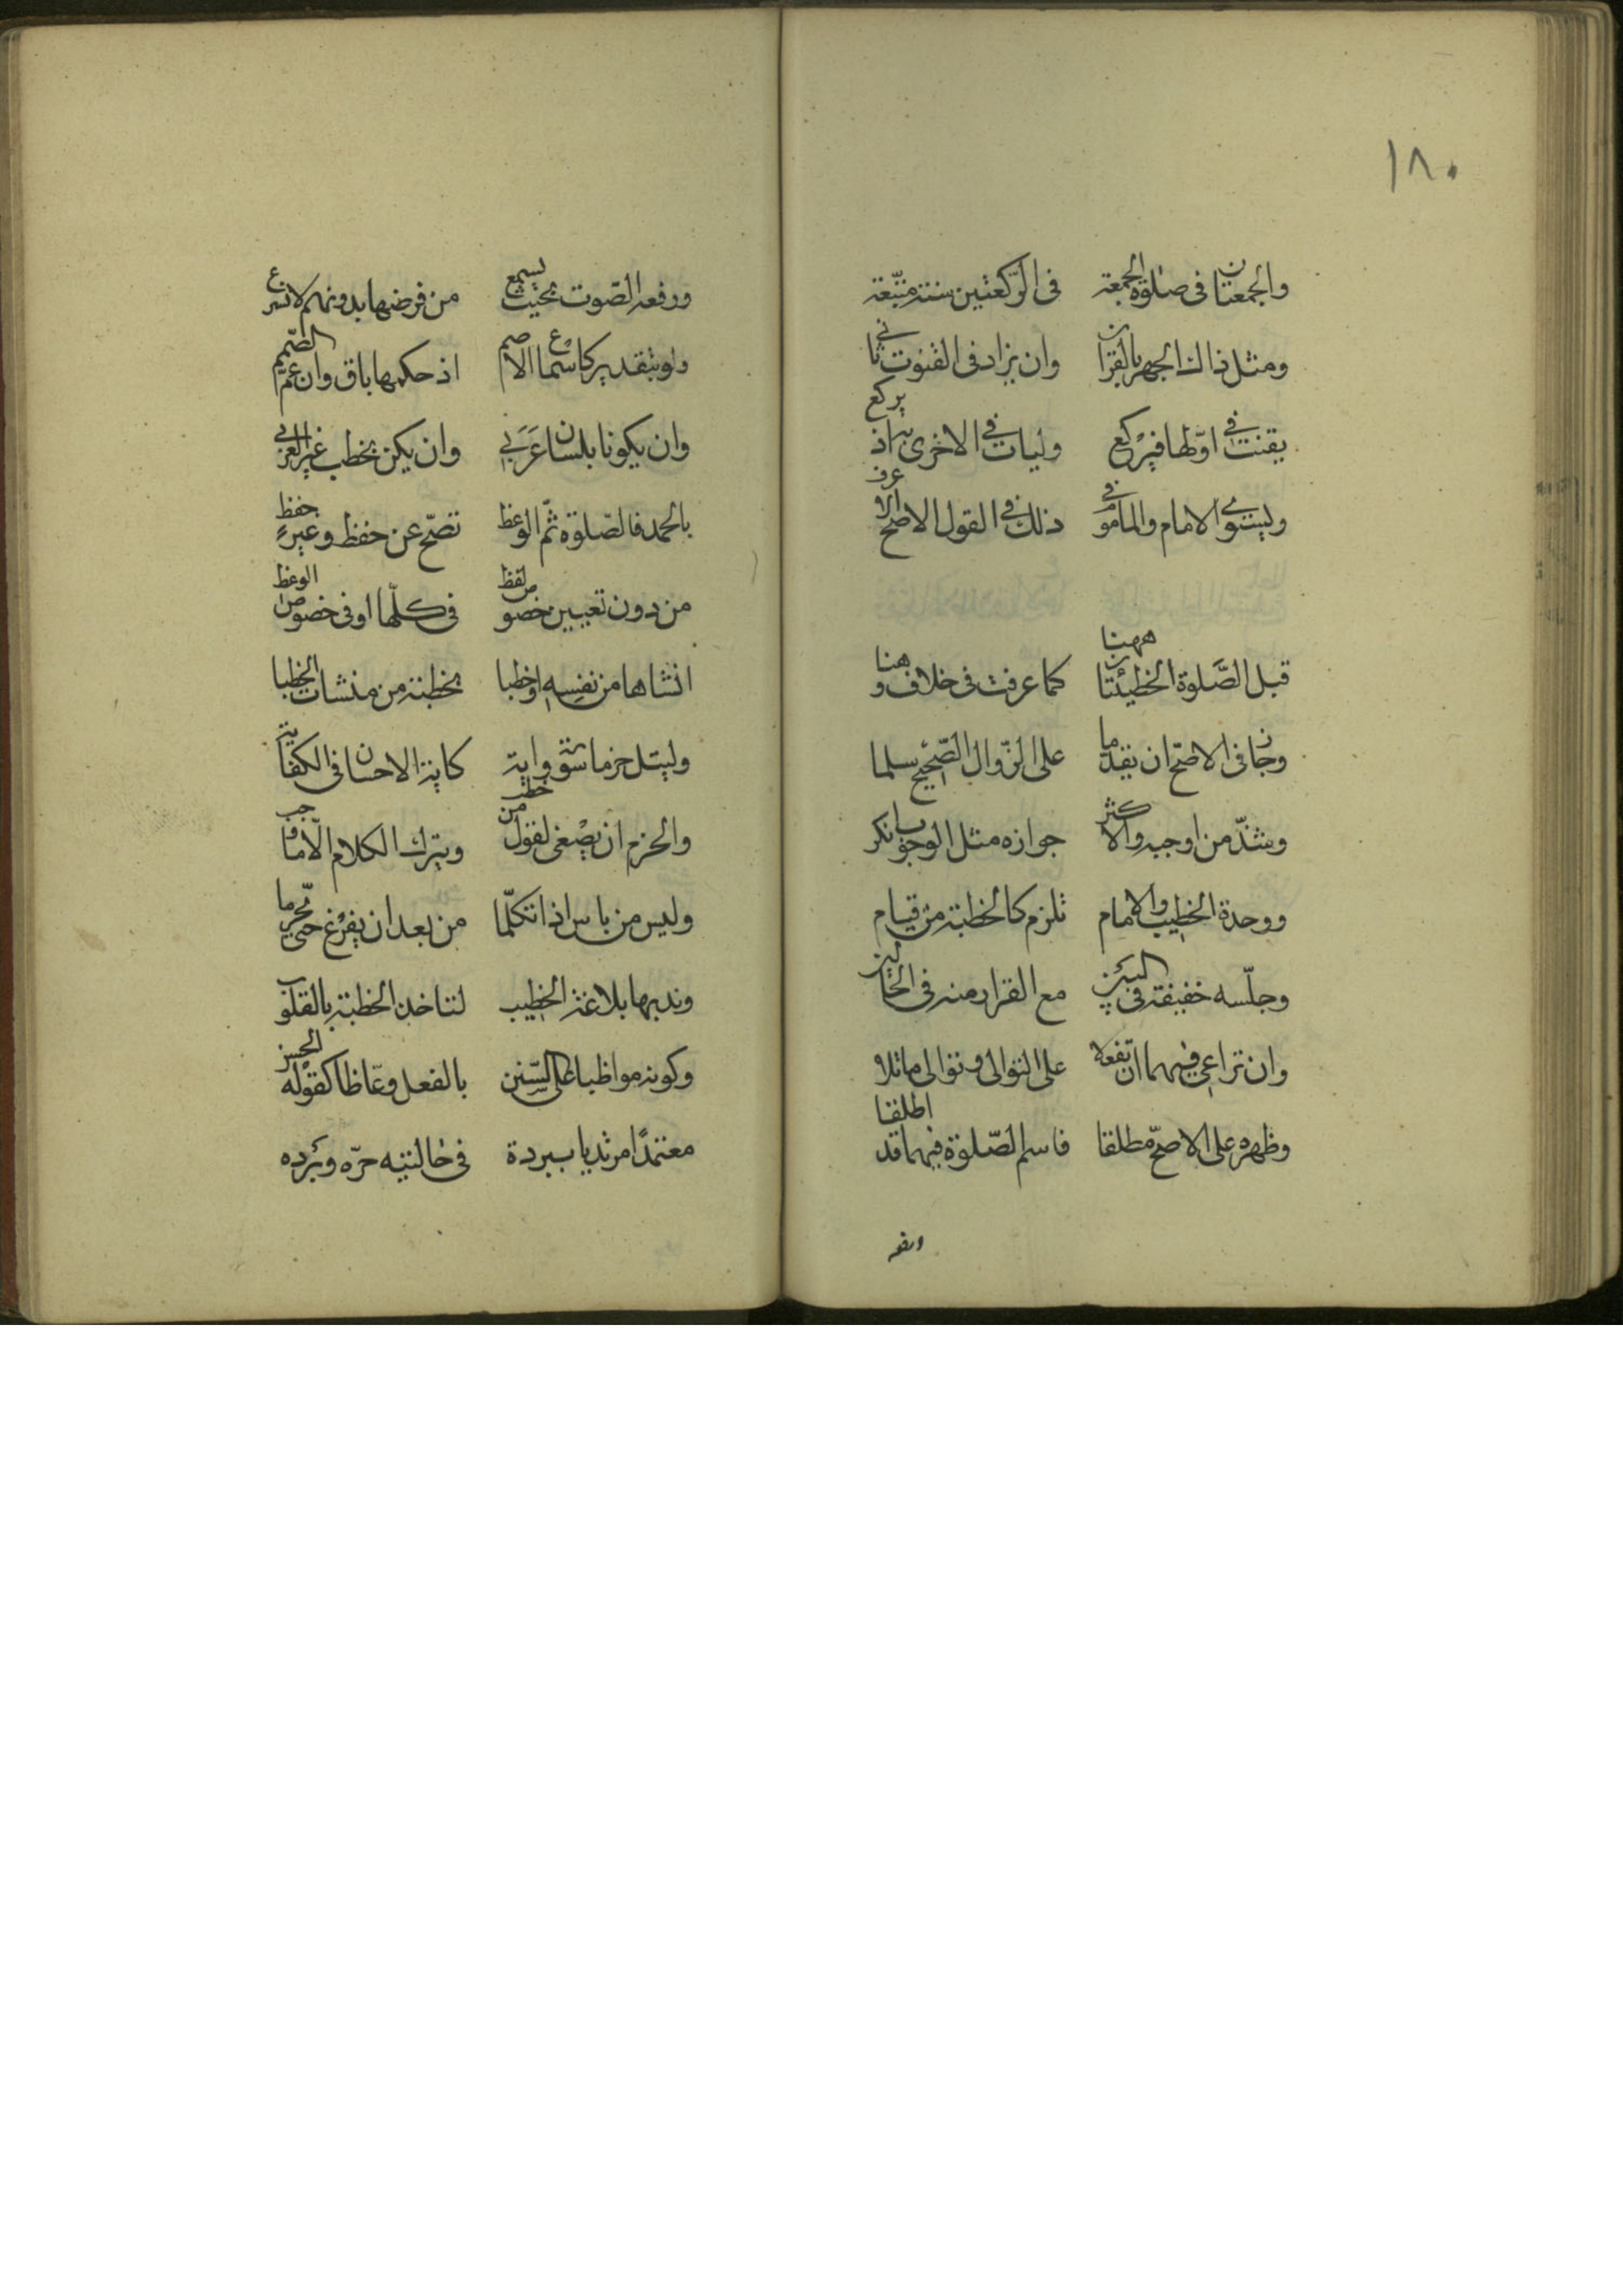 ١٨٠
والجمعتان فى صلوة الجمعة فى الركعتين سنة متبعة
ومثل ذاك الجهر بالقران وان يزاد فى القنوت ثانى
يقنت فى اولها فيركع وليات فى الاخرى به اذ يركع
ويستوى الامام والماموم فى ذلك فى القول الاصح الاعرف
قبل الصّلوة الخطبتان ههنا كما عرفت فى خلاف وهنا
وجاز فى الاصحّ ان يقدّما على الزّوال الصّحيح سلما
وشذّ من اوجبه والاكثر جوازه مثل الوجوب انكر
ووحدة الخطيب والامام تلزم كالخطبة من قيام
وجلسه خفيفة فى البين مع القرار منه فى الحالين
وان تراعى فيهما ان تفعلا على التوالى وتوالى ما تلا
وطهره على الاصحّ مطلقا فاسم الصّلوة فيهما قد اطلقا
ورفعه
ورفعه الصّوت بحيث يسمع من فرضها بدونهم لا تشرع
ولو بتقدير كاسماع الاصم اذ حكمها باق وان عمّ الصّمم
وان يكونا بلسان عَرَبى وان يكن يخطب غير العربى
بالحمد فالصّلوة ثمّ الوعظ تصحّ عن حفظ وغير حفظ
من دون تعيين خصوص لفظ فى كلّها او فى خصوص الوعظ
انشاها من نفسه او خطبا بخطبة من منشات الخطبا
وليتل حزما سورة واية كاية الاحسان فى الكفاية
والحزم ان يصغى لقول من خطب ويترك الكلام الّا ما وجب
وليس من باس اذا تكلّما من بعد ان يفرغ حتى يحرما
وندبها بلاغة الخطيب لتاخذ الخطبة بالقلوب
وكونه مواظبا على السّنن بالفعل وعّاظا كقوله الحسن
معتمدًا مرتديا ببردة فى حالتيه حرّه وبرده